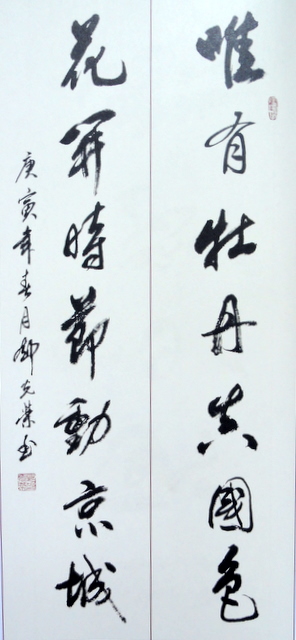 唯有牡丹真國色
花開時節動京城
庚寅年春月鄧先榮書